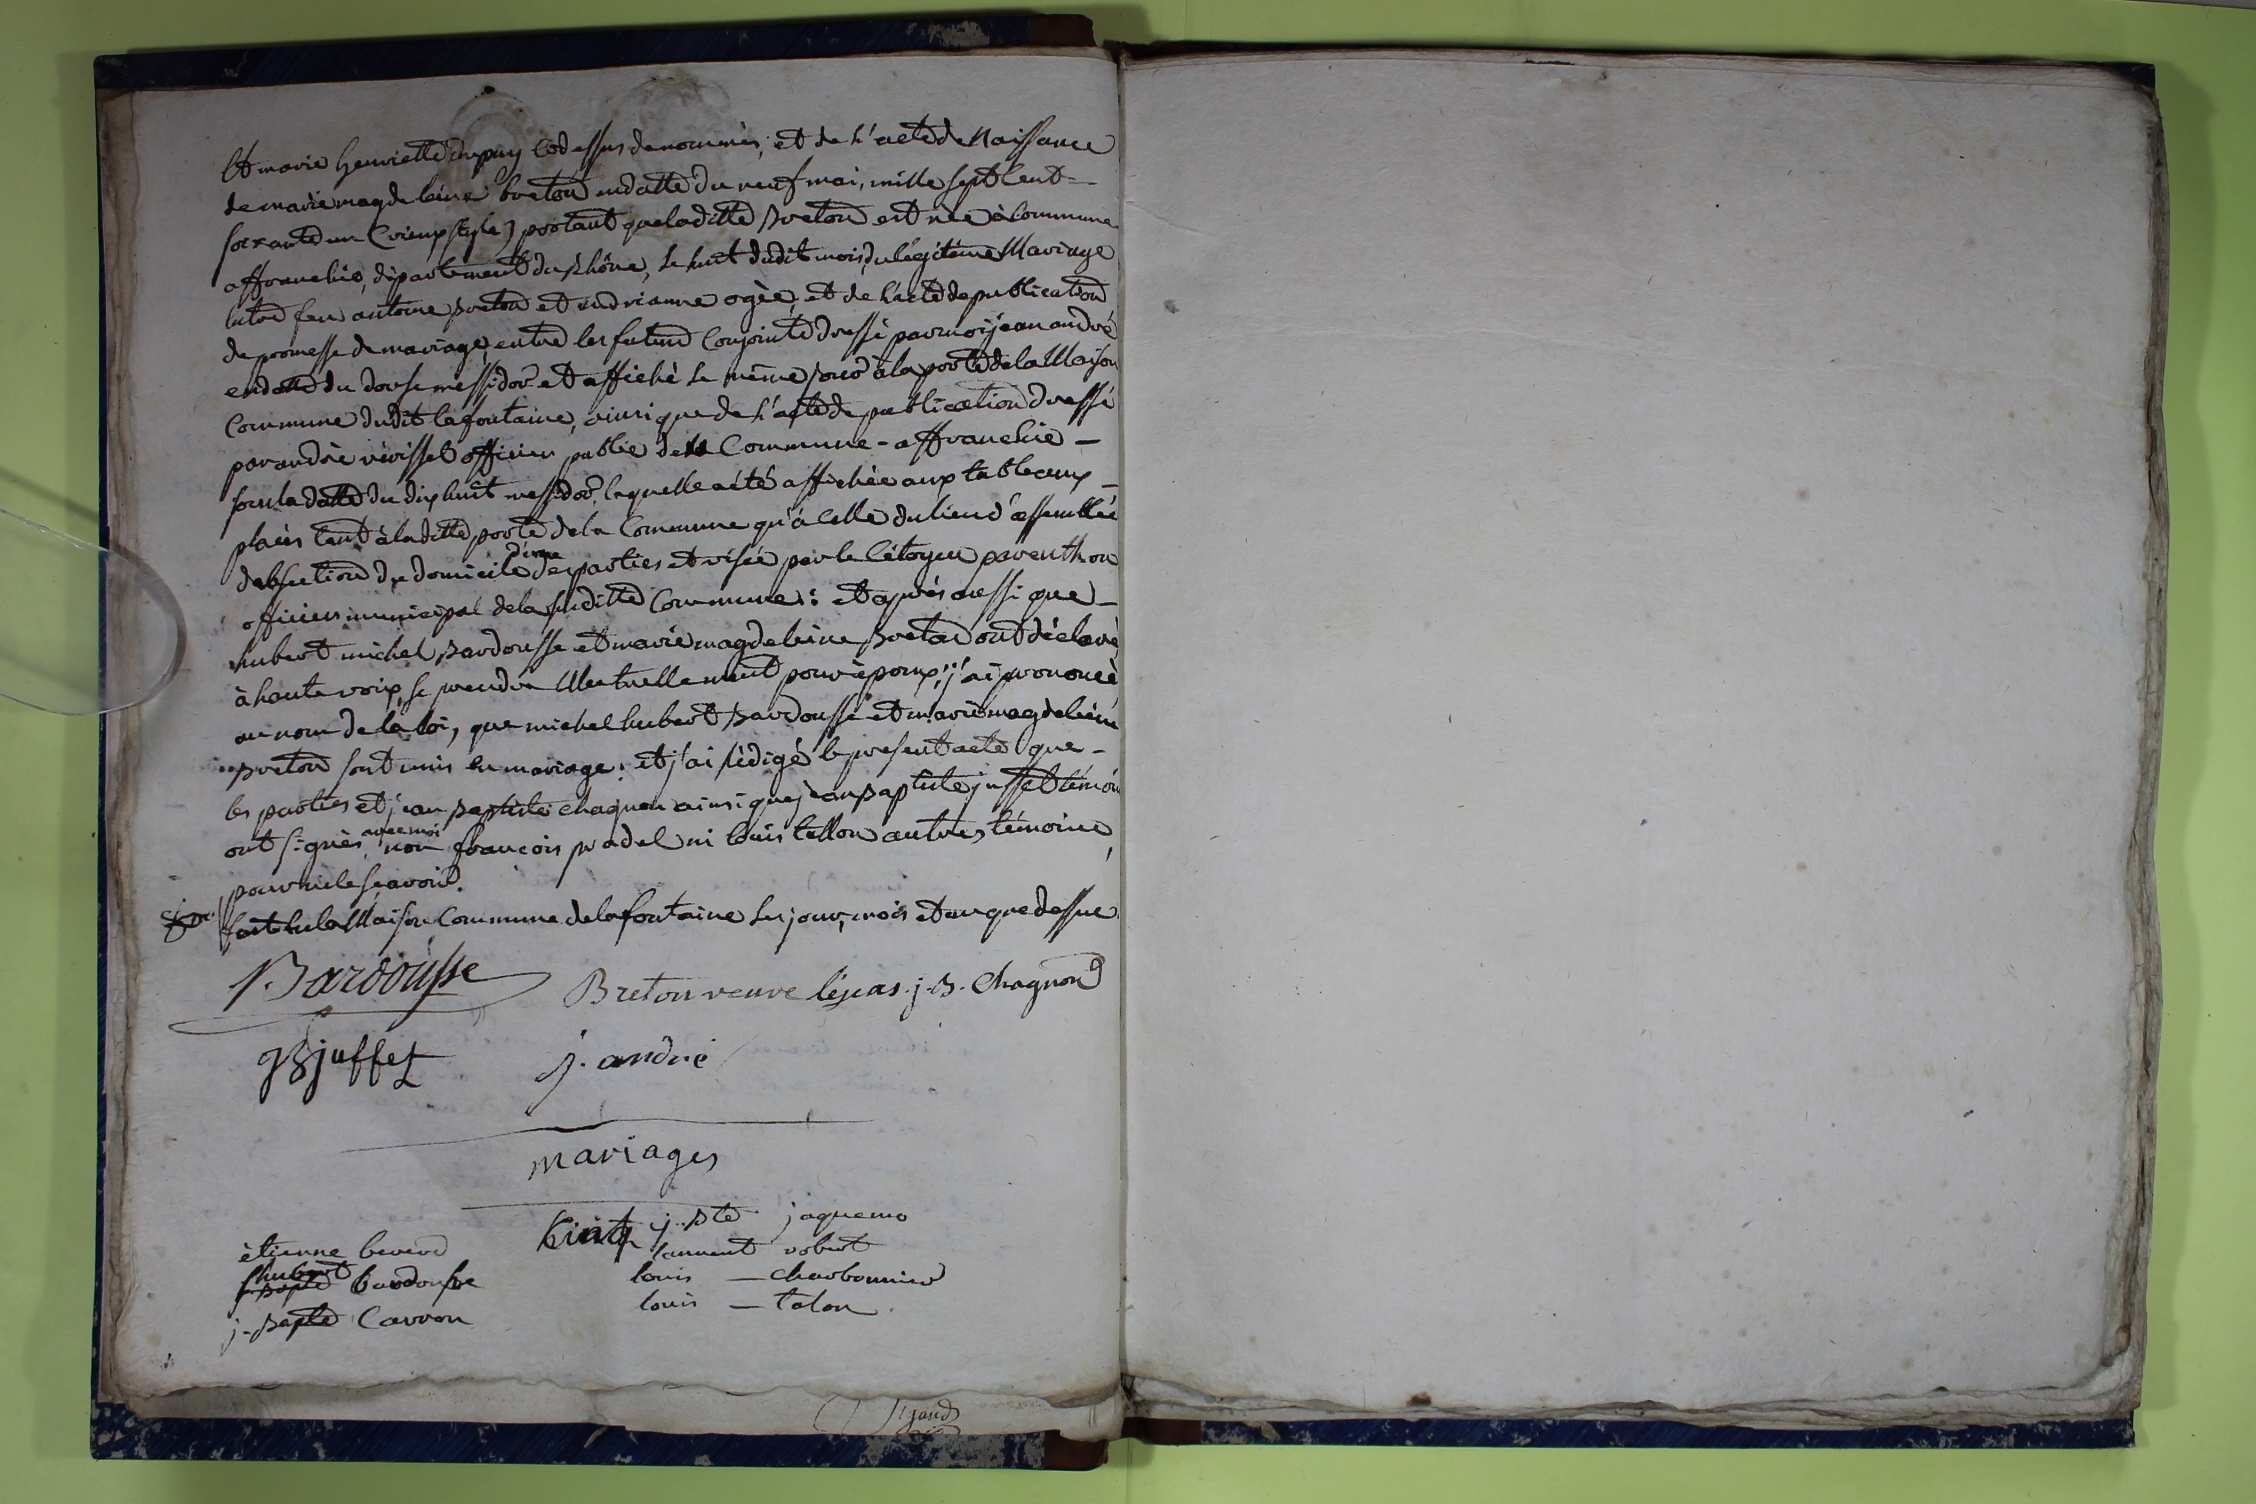 Et marie henriette dupuy cy dessus denommés, et de l'acte de Naissance
de marie magdeleine breton en datte du neuf mai, mille sept cent
soixante un (vieux style) portant que laditte Breton est née à Commune
affranchie, département du Rhône, le huit dudit mois, du légitime Mariage
entre feu antoine Breton et andrianne ogée, et de l'acte de publication
de promesse de mariage, entre les futurs Conjoints dressé par moi jean andré
en datte du douse messidor et affiché le même jour à la porte de la Maison
Commune dudit lafontaine, ainsi que de l'acte de publication dressé
par andré officier public de la Commune - affranchie -
sous la datte du dix huit messidor, laquelle a été affichée aux tableaux
placés tant à laditte porte de la Commune qu'à celle du lieu d'assemblée
de la section du domicile d'une des parties et visée par le Citoyen parenthon
officier municipal de la susditte Commune : et après aussi que -
hubert michel Bardousse et marie magdeleine Breton ont déclaré
à haute voix, se prendre Mutuellement pour époux ; j'ai prononcé
au nom de la loi, que michel hubert Bardousse et marie magdeleine
Breton sont unis en mariage : et j'ai rédigé le present acte que -
les parties et jean Baptiste chagnon ainsi que jean Baptiste juffet témoin
ont signés avec moi non françois pradel ni louis tallon autres témoins,
pour ne le sçavoir.
fait en la Maison Commune de lafontaine les jour, mois et an que dessus
Bardousse
Breton veuve j. B. Chagnon
J B juffet
J. andré
mariages
j. Bte jaquemo
étienne
laurent robert
hubert bardousse
louis — charbonnier
j. Bapte Carron
louis — talon